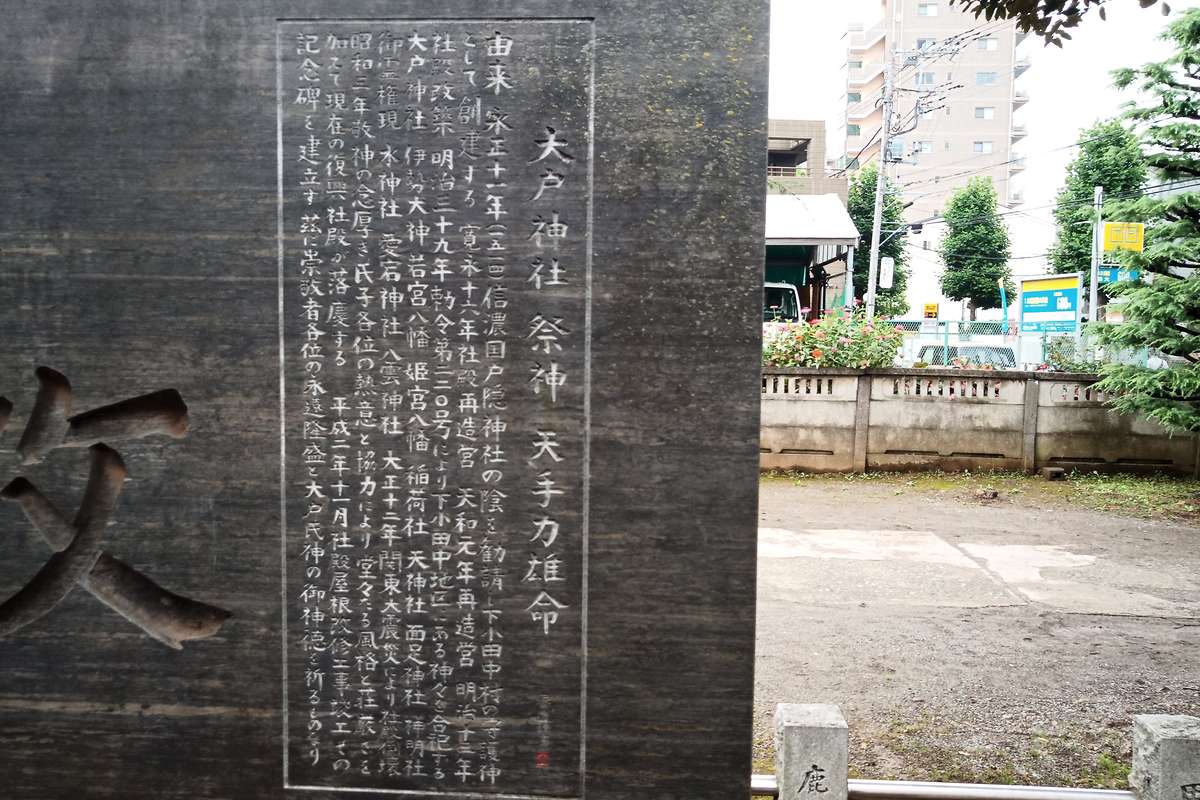 大戸神社 祭神 天手力雄命
由来 永正十一年(一五一四)信濃国戸隠神社の陰を勧請し下小田中村の守護神
として創建する 寛永十六年社殿再造宮 天和元年再造営 明治十三年
社殿改築 明治三十九年勅令第二二〇号により下小田中地区にある神々を合祀する
大戸神社 伊勢大神 若宮八幡 姫宮八幡 稲荷社 天神社 面足神社 神明社
御霊権現 水神社 愛宕神社 八雲神社 大正十二年関東大震災により社殿倒壊
昭和三年敬神の念厚き氏子各位の熱意と協力により堂々たる風格と荘厳さを
加えて現在の復興社殿が落慶する 平成二年十一月社殿屋根改修工事竣工しその
記念碑を建立す 茲に崇敬者各位の永遠隆盛と大戸氏神の御神徳を祈るものなり
敬
鹿